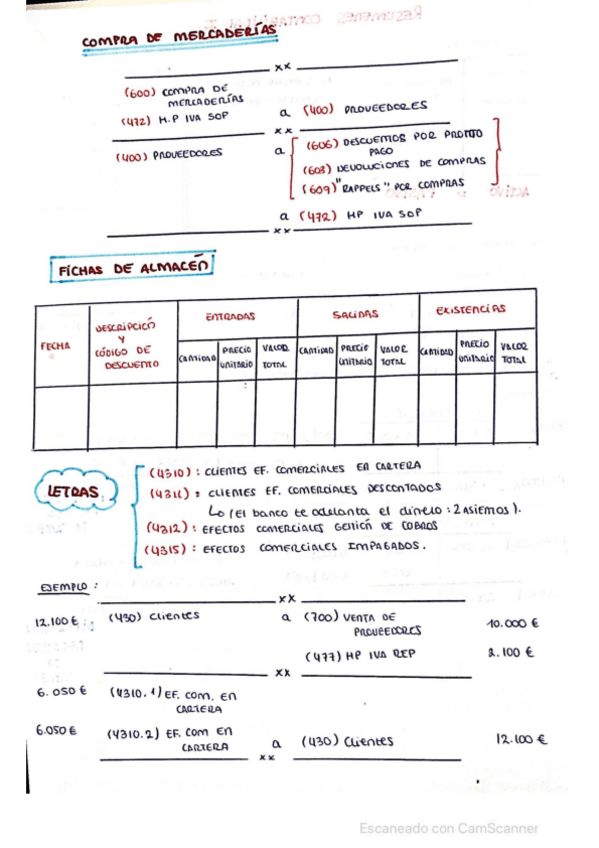 COMPRA DE MERCADERÍAS
xx
(600) COMPRA DE
MERCADERÍAS
(472) H.P IVA SOP
a (400) PROVEEDORES
xx
(400) PROVEEDORES
a (606) DESCUENTOS POR PRONTO
PAGO
(608) DEVOLUCIONES DE COMPRAS
(609) "RAPPELS" POR COMPRAS
a (472) HP IVA SOP
xx
FICHAS DE ALMACÉN
FECHA
DESCRIPCIÓN
Y
CÓDIGO DE
DESCUENTO
ENTRADAS
SALIDAS
EXISTENCIAS
CANTIDAD PRECIO UNITARIO VALOR TOTAL CANTIDAD PRECIO UNITARIO VALOR TOTAL CANTIDAD PRECIO UNITARIO VALOR TOTAL
LETRAS
(4310) : CLIENTES EF. COMERCIALES EN CARTERA
(4311) : CLIENTES EF. COMERCIALES DESCONTADOS
Lo (El banco te adelanta el dinero : 2 ASIENTOS).
(4312) : EFECTOS COMERCIALES GESTIÓN DE COBROS
(4315) : EFECTOS COMERCIALES IMPAGADOS.
EJEMPLO :
xx
12.100 € (430) Clientes a (700) VENTA DE 10.000 €
PROVEEDORES
(477) HP IVA REP 2.100 €
xx
6.050 € (4310.1) EF. COM. EN
CARTERA
6.050 € (4310.2) EF. COM EN
CARTERA a (430) Clientes 12.100 €
xx
Escaneado con CamScanner